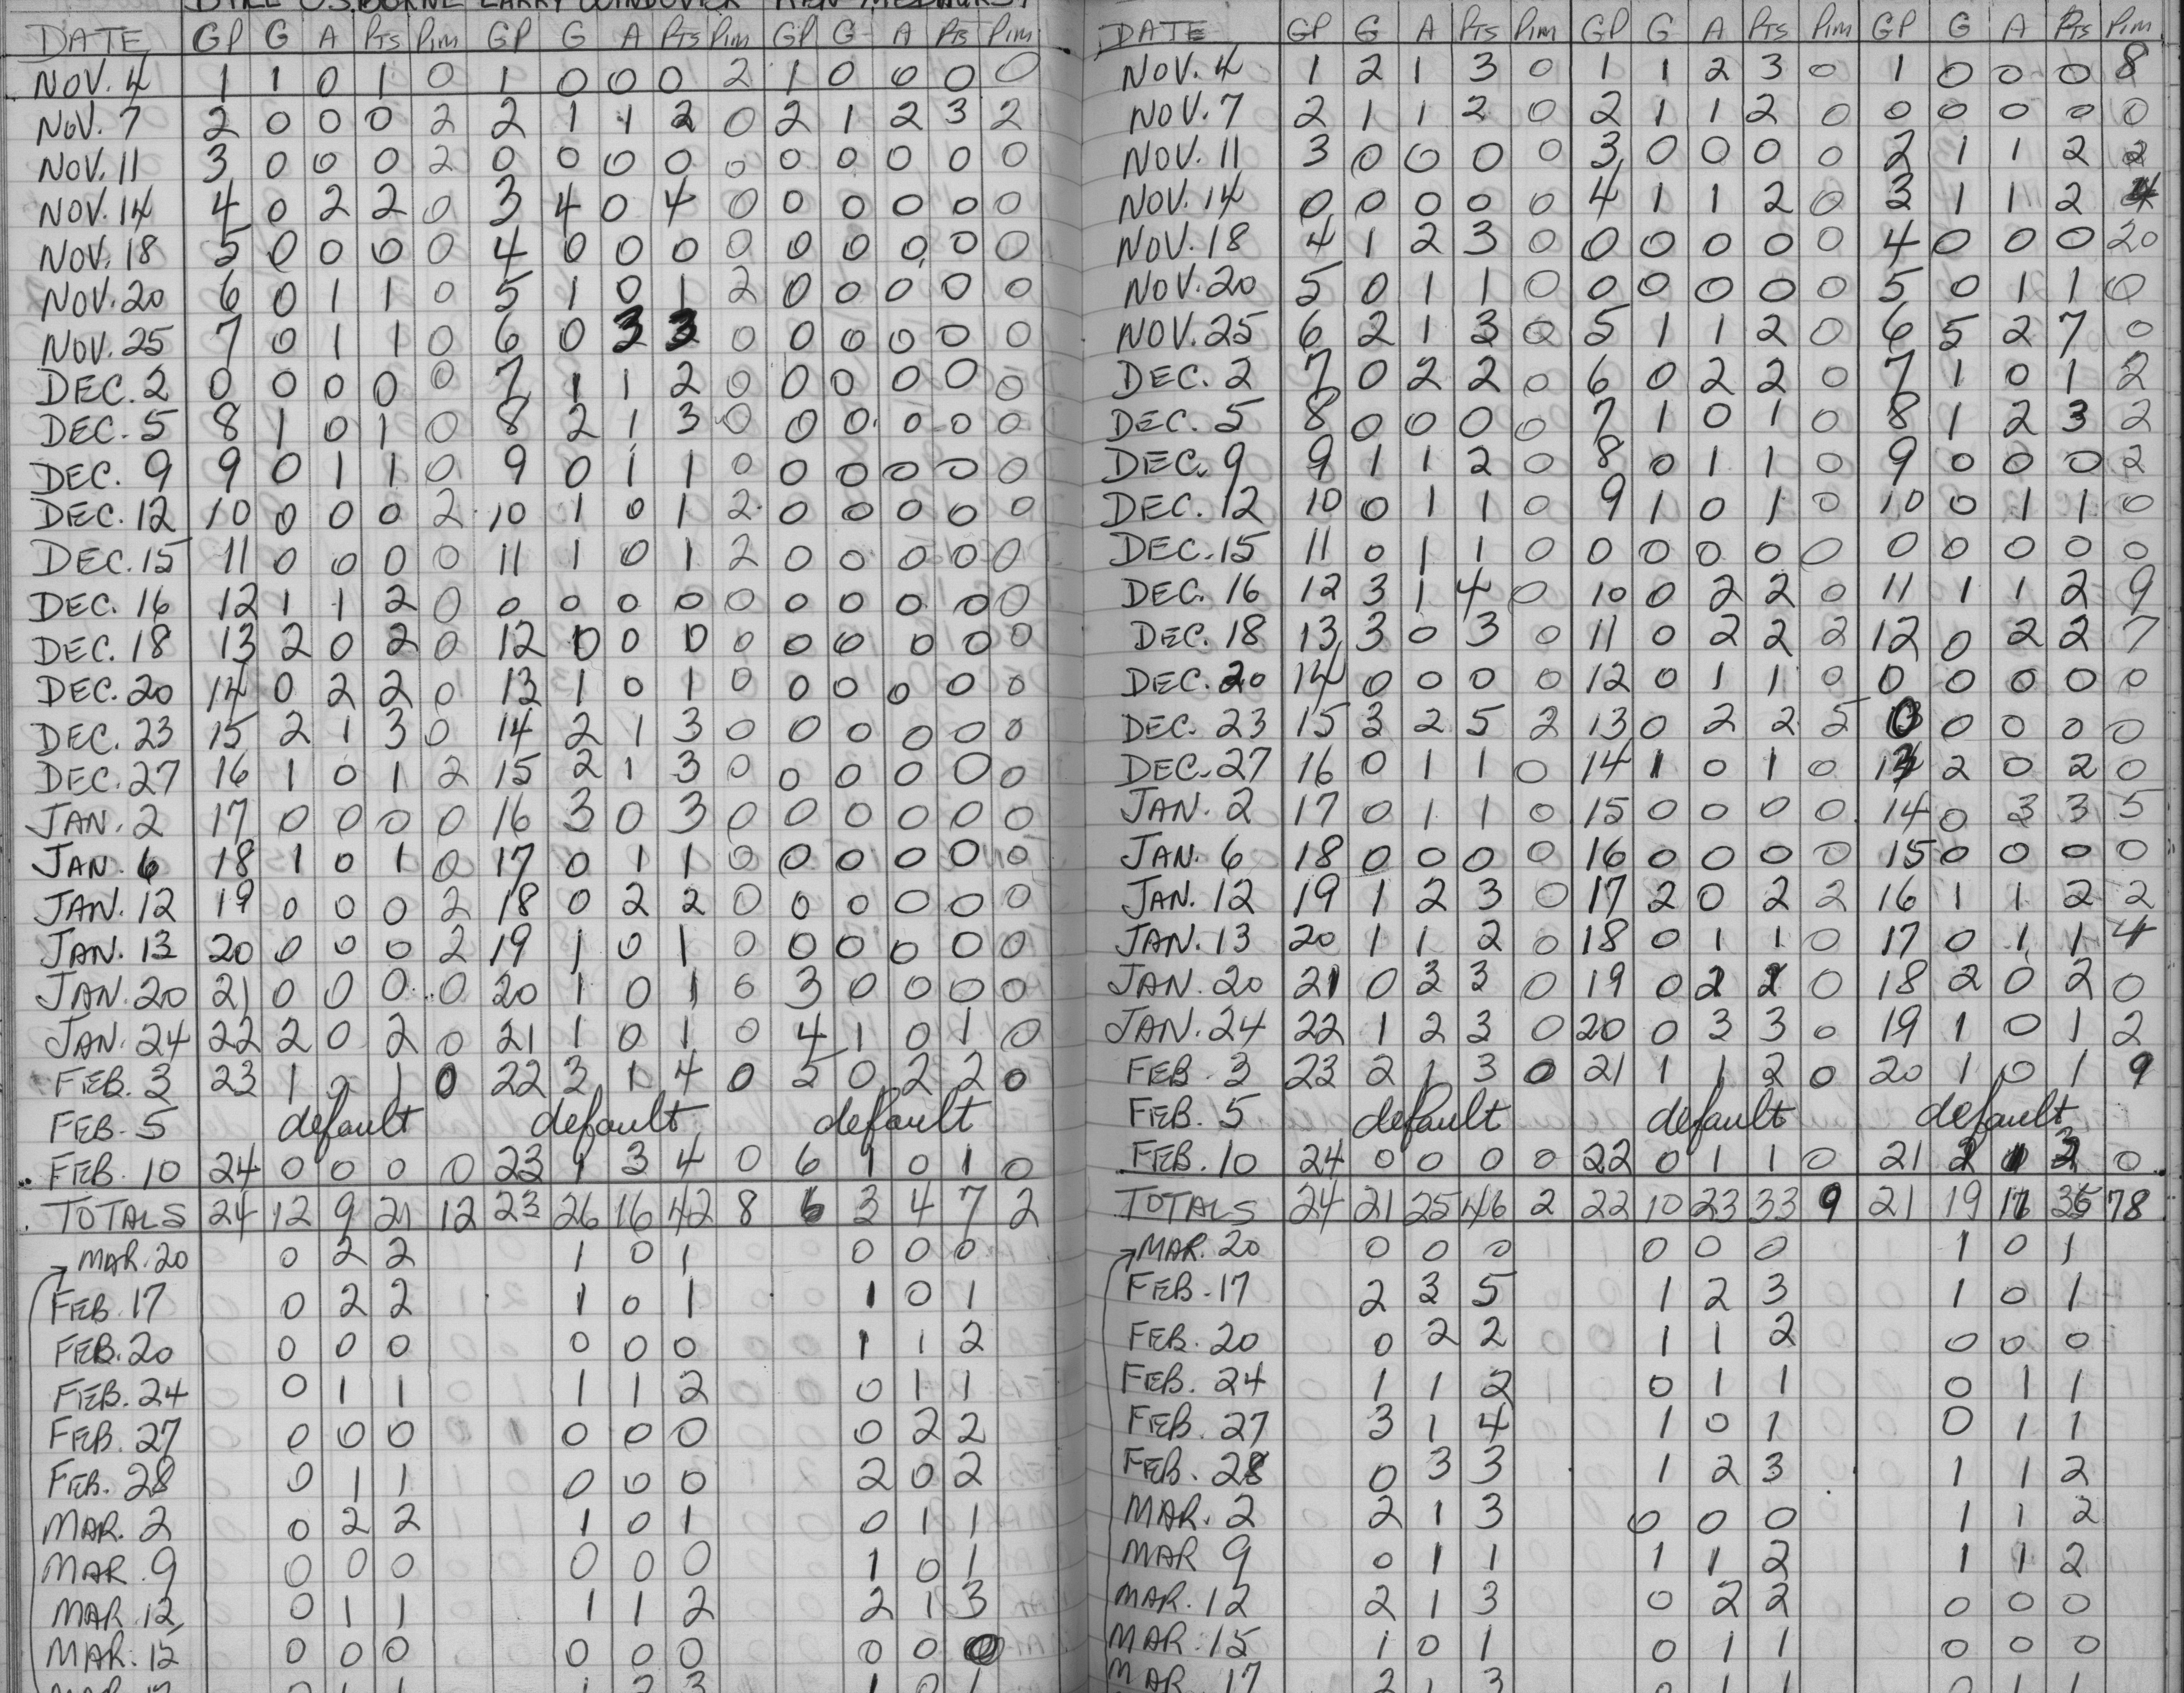 BILL OSBORNE LARRY WINDOVER KEN MEDHURST
DATE GP G A Pts Pim GP G A Pts Pim GP G A Pts Pim
NOV. 4 1 1 0 1 0 1 0 0 0 2 1 0 0 0 0
NOV. 7 2 0 0 0 2 2 1 1 2 0 2 1 2 3 2
NOV. 11 3 0 0 0 2 0 0 0 0 0 0 0 0 0 0
NOV. 14 4 0 2 2 0 3 4 0 4 0 0 0 0 0 0
NOV. 18 5 0 0 0 0 4 0 0 0 0 0 0 0 0 0
NOV. 20 6 0 1 1 0 5 1 0 1 2 0 0 0 0 0
NOV. 25 7 0 1 1 0 6 0 3 3 0 0 0 0 0 0
DEC. 2 0 0 0 0 0 7 1 1 2 0 0 0 0 0 0
DEC. 5 8 1 0 1 0 8 2 1 3 0 0 0 0 0 0
DEC. 9 9 0 1 1 0 9 0 1 1 0 0 0 0 0 0
DEC. 12 10 0 0 0 2 10 1 0 1 2 0 0 0 0 0
DEC. 15 11 0 0 0 0 11 1 0 1 2 0 0 0 0 0
DEC. 16 12 1 1 2 0 0 0 0 0 0 0 0 0 0 0
DEC. 18 13 2 0 2 0 12 0 0 0 0 0 0 0 0 0
DEC. 20 14 0 2 2 0 13 1 0 1 0 0 0 0 0 0
DEC. 23 15 2 1 3 0 14 2 1 3 0 0 0 0 0 0
DEC. 27 16 1 0 1 2 15 2 1 3 0 0 0 0 0 0
JAN. 2 17 0 0 0 0 16 3 0 3 0 0 0 0 0 0
JAN. 6 18 1 0 1 0 17 0 1 1 0 0 0 0 0 0
JAN. 12 19 0 0 0 2 18 0 2 2 0 0 0 0 0 0
JAN. 13 20 0 0 0 2 19 1 0 1 0 0 0 0 0 0
JAN. 20 21 0 0 0 0 20 1 0 1 0 3 0 0 0 0
JAN. 24 22 2 0 2 0 21 1 0 1 0 4 1 0 1 0
FEB. 3 23 1 0 1 0 22 3 1 4 0 5 0 2 2 0
FEB. 5 default default default
FEB. 10 24 0 0 0 0 23 1 3 4 0 6 1 0 1 0
TOTALS 24 12 9 21 12 23 26 16 42 8 6 3 4 7 2
MAR. 20 0 2 2 1 0 1 0 0 0
FEB. 17 0 2 2 1 0 1 1 0 1
FEB. 20 0 0 0 0 0 0 1 1 2
FEB. 24 0 1 1 1 1 2 0 1 1
FEB. 27 0 0 0 0 0 0 0 2 2
FEB. 28 0 1 1 0 0 0 2 0 2
MAR. 2 0 2 2 1 0 1 0 1 1
MAR. 9 0 0 0 0 0 0 1 0 1
MAR. 12 0 1 1 1 1 2 2 1 3
MAR. 15 0 0 0 0 0 0 0 0 0
DATE GP G A Pts Pim GP G A Pts Pim GP G A Pts Pim
NOV. 4 1 2 1 3 0 1 1 2 3 0 1 0 0 0 8
NOV. 7 2 1 1 2 0 2 1 1 2 0 0 0 0 0 0
NOV. 11 3 0 0 0 0 3 0 0 0 0 2 1 1 2 2
NOV. 14 0 0 0 0 0 4 1 1 2 0 3 1 1 2 4
NOV. 18 4 1 2 3 0 0 0 0 0 0 4 0 0 0 20
NOV. 20 5 0 1 1 0 0 0 0 0 0 5 0 1 1 0
NOV. 25 6 2 1 3 0 5 1 1 2 0 6 5 2 7 0
DEC. 2 7 0 2 2 0 6 0 2 2 0 7 1 0 1 2
DEC. 5 8 0 0 0 0 7 1 0 1 0 8 1 2 3 2
DEC. 9 9 1 1 2 0 8 0 1 1 0 9 0 0 0 2
DEC. 12 10 0 1 1 0 9 1 0 1 0 10 0 1 1 0
DEC. 15 11 0 1 1 0 0 0 0 0 0 0 0 0 0 0
DEC. 16 12 3 1 4 0 10 0 2 2 0 11 1 1 2 9
DEC. 18 13 3 0 3 0 11 0 2 2 2 12 0 2 2 7
DEC. 20 14 0 0 0 0 12 0 1 1 0 0 0 0 0 0
DEC. 23 15 3 2 5 2 13 0 2 2 5 0 0 0 0 0
DEC. 27 16 0 1 1 0 14 1 0 1 0 13 2 0 2 0
JAN. 2 17 0 1 1 0 15 0 0 0 0 14 0 3 3 5
JAN. 6 18 0 0 0 0 16 0 0 0 0 15 0 0 0 0
JAN. 12 19 1 2 3 0 17 2 0 2 2 16 1 1 2 2
JAN. 13 20 1 1 2 0 18 0 1 1 0 17 0 1 1 4
JAN. 20 21 0 3 3 0 19 0 0 18 2 0 2 0
JAN. 24 22 1 2 3 0 20 0 3 3 0 19 1 0 1 2
FEB. 3 23 2 1 3 0 21 1 1 2 0 20 1 0 1 9
FEB. 5 default default default
FEB. 10 24 0 0 0 0 22 0 1 1 0 21 2 1 3 0
TOTALS 24 21 25 46 2 22 10 23 33 9 21 19 17 36 78
MAR. 20 0 0 0 0 0 0 1 0 1
FEB. 17 2 3 5 1 2 3 1 0 1
FEB. 20 0 2 2 1 1 2 0 0 0
FEB. 24 1 1 2 0 1 1 0 1 1
FEB. 27 3 1 4 1 0 1 0 1 1
FEB. 28 0 3 3 1 2 3 1 1 2
MAR. 2 2 1 3 0 0 0 1 1 2
MAR 9 0 1 1 1 1 2 1 1 2
MAR. 12 2 1 3 0 2 2 0 0 0
MAR. 15 1 0 1 0 1 1 0 0 0
MAR. 17 2 1 3 0 1 1 0 1 1